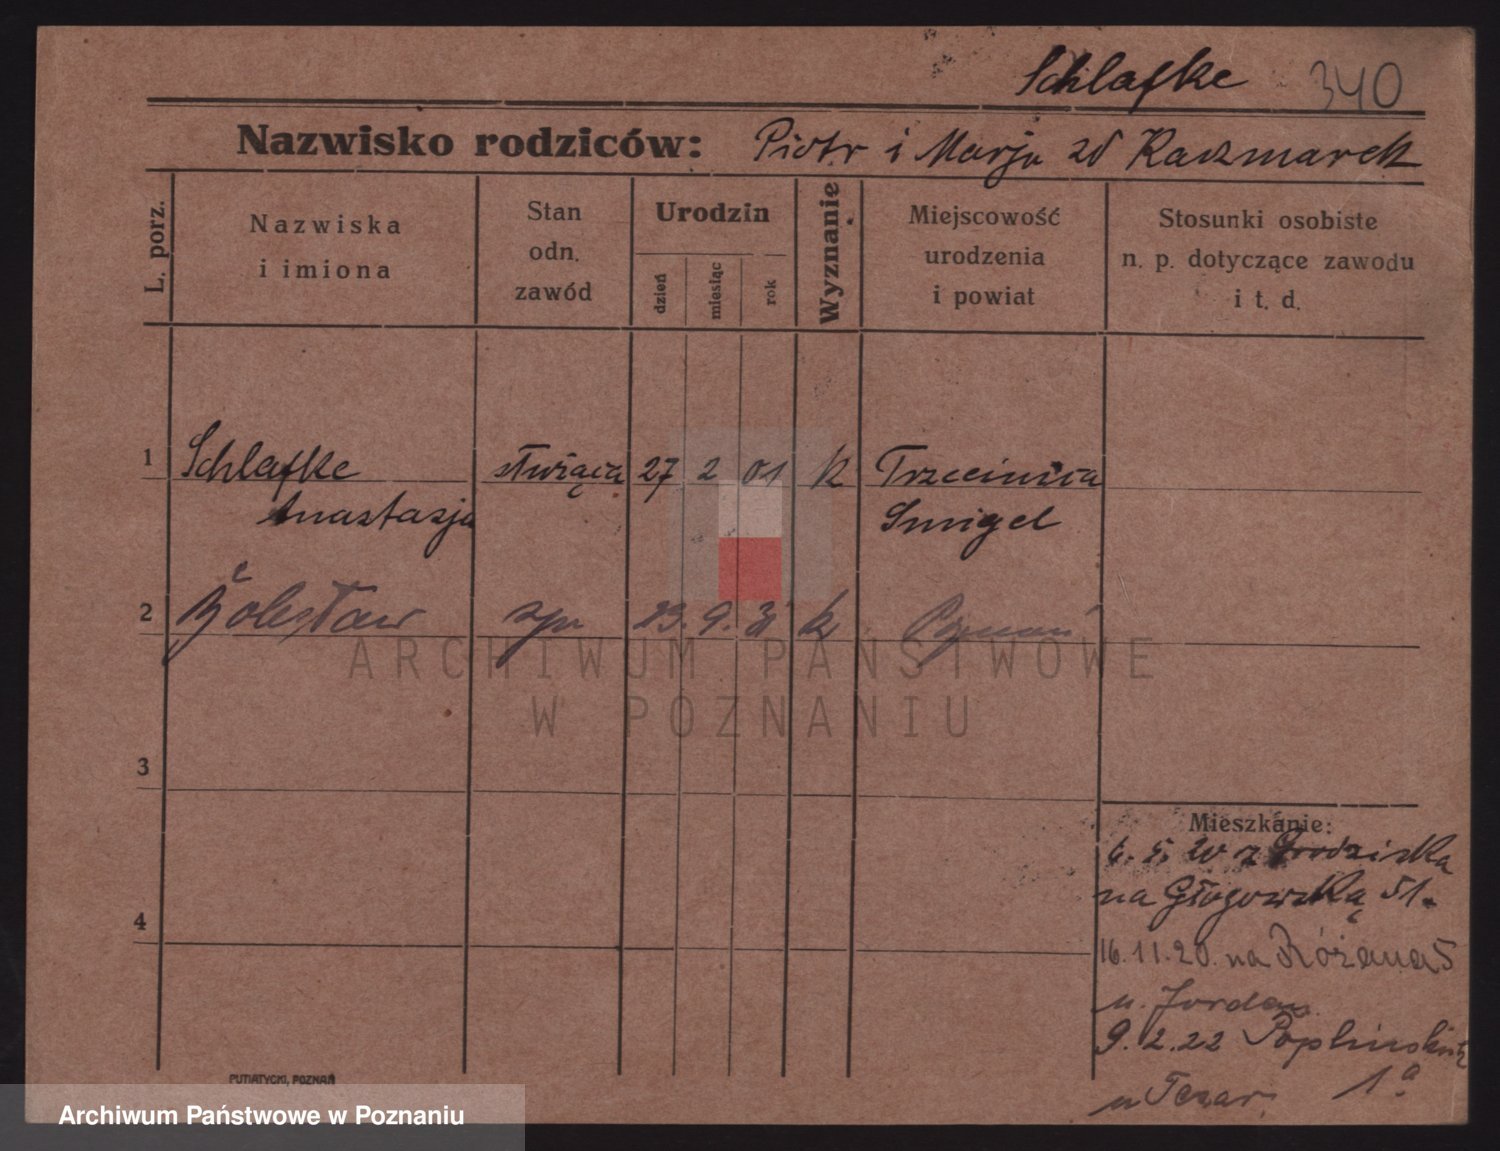 Schlafke 340
Nazwisko rodziców: Piotr i Marja zd Kaczmarek
L. porz.
Nazwiska
i imiona
Stan
odn.
zawód
Urodzin
dzień
miesiąc
rok
Wyznanie
Miejscowość
urodzenia
i powiat
Stosunki osobiste
n. p. dotyczące zawodu
i t. d.
1 Schlafke służąca 27 2 01 k Trzcinica
Anastasja Smigel
2 Bolesław syn 23. 9. 31 k Poznań
ARCHIWUM PAŃSTWOWE
W POZNANIU
3
Mieszkanie:
6. 5. 20 z Grodziska
na Głogowską 51.
4
16. 11. 20. na Różana 5
u. Jordan
9. 2. 22 Poplinskich
u 1a
PUTIATYCKI, POZNAŃ
Archiwum Państwowe w Poznaniu